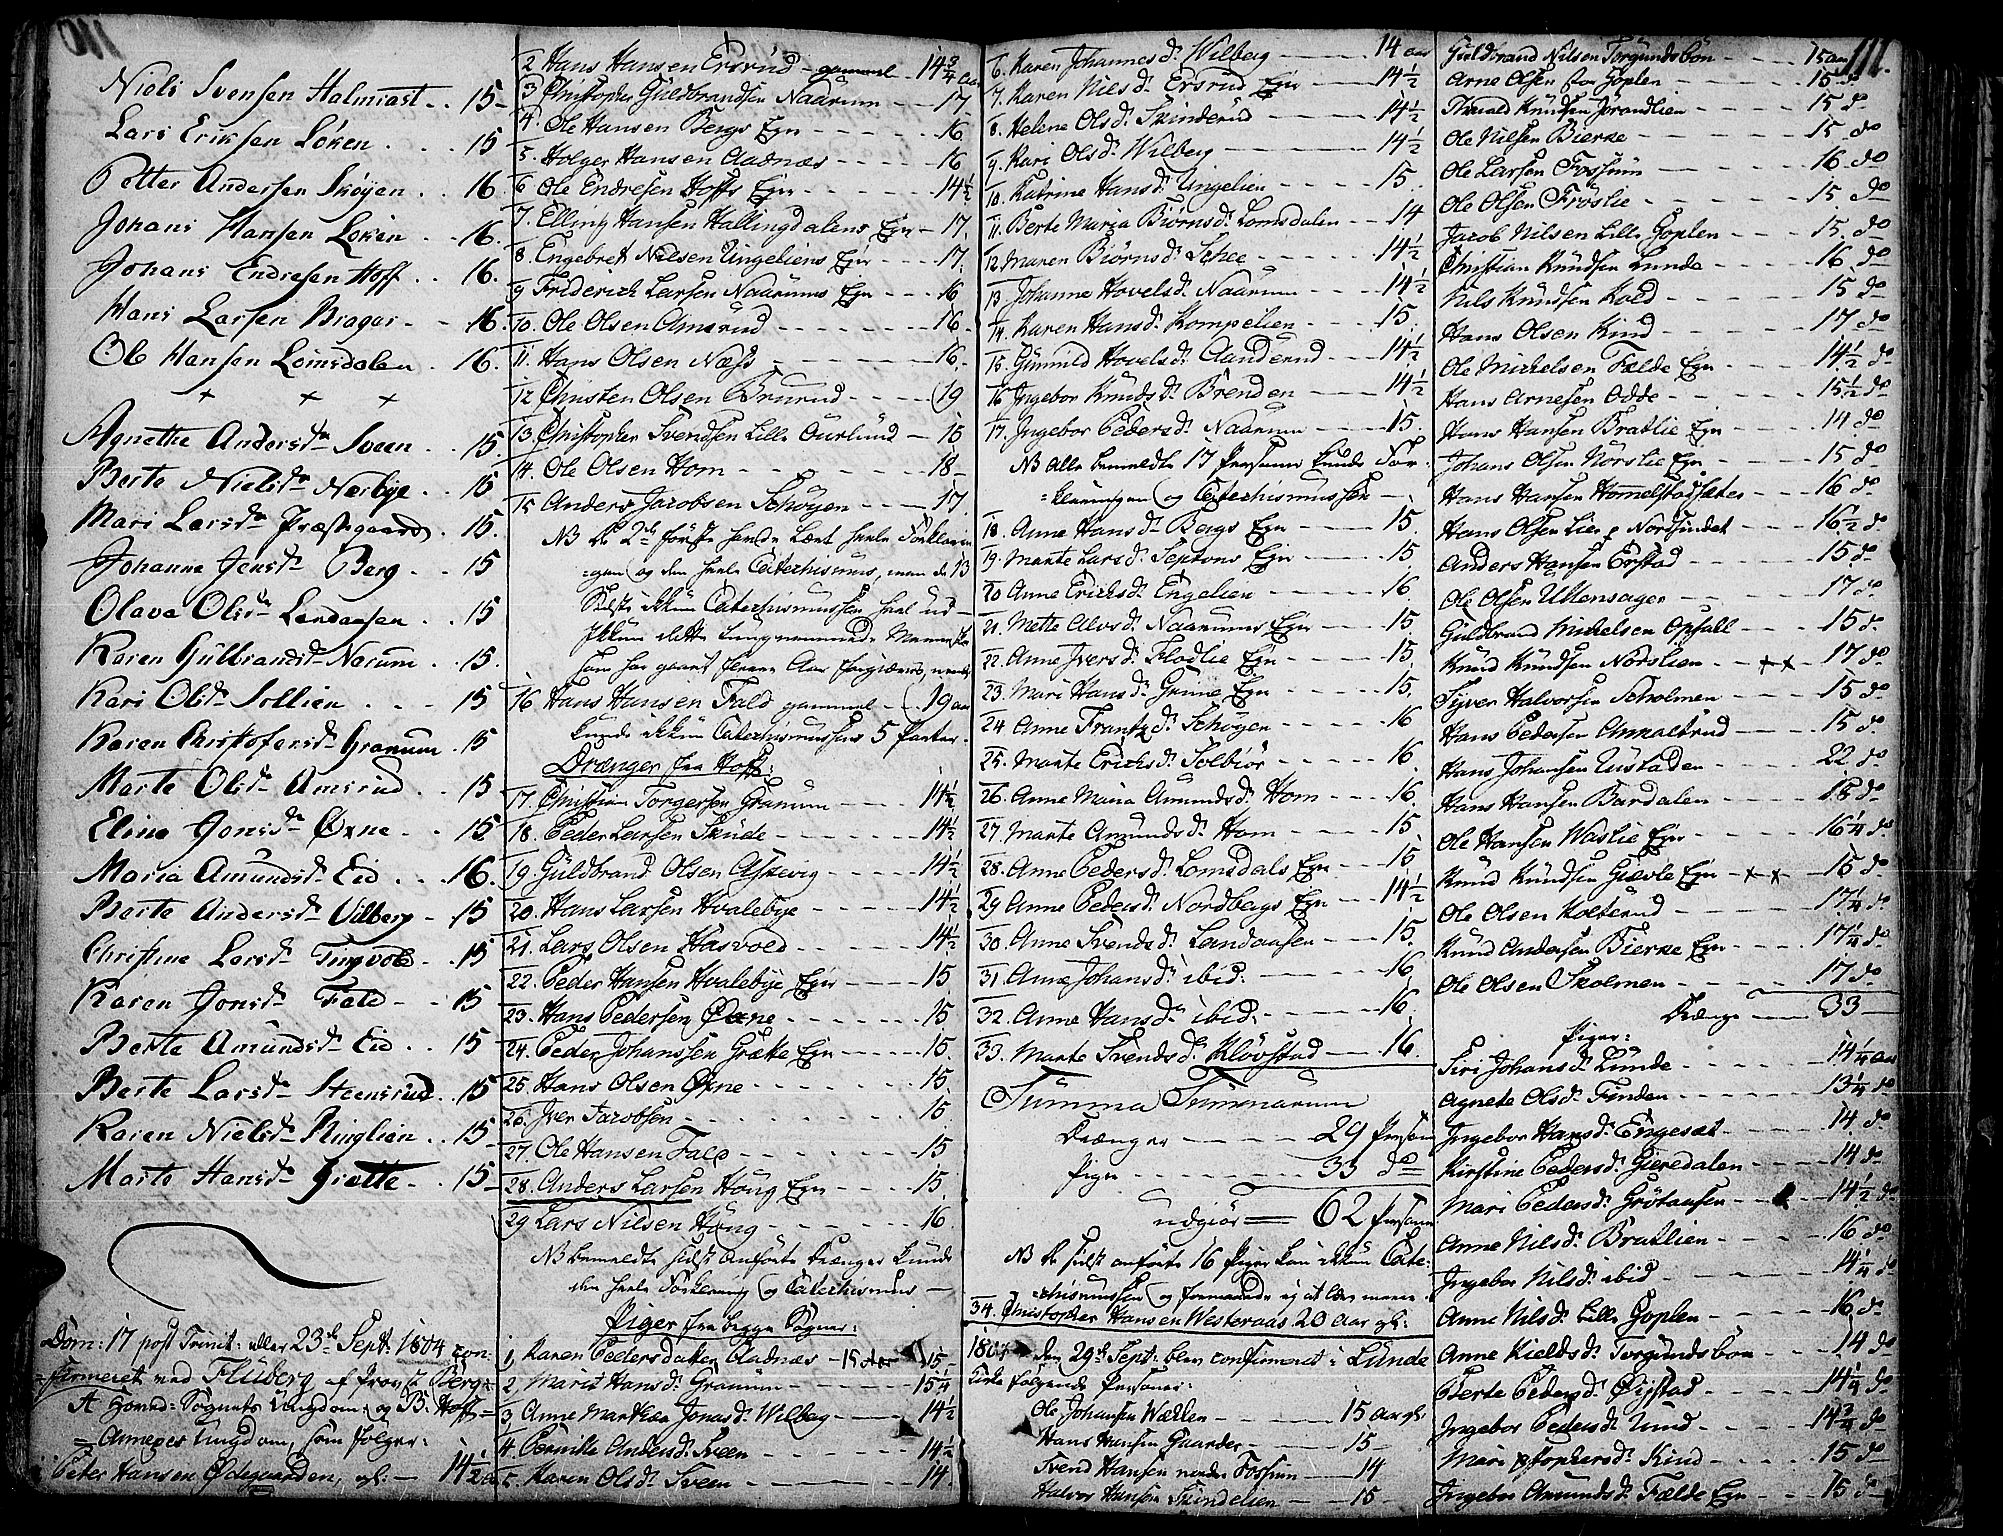 110
Niels Svensen Halmrast .. 15-
Lars Eriksen Løken . . . . 15
Petter Andersen Skøyen .. 16
Johans Hansen Løken . . 16.
Johans Endresen Hoff .. 16.
Hans Larsen Bragar - - 16-
Ole Hansen Lomsdalen . 16.
+ + +
Agnethe Andersda Sveen . . 15.
Berte Nielsda Nærbye . . 15
Mari Larsda Præstegaard . 15.
Johanne Jensda Berg - - 15
Olava Olsda Landaasen . . 15
Karen Gulbrandsda Narum . . 15.
Kari Olsda Sollien . . - . 15
Karen Christofersda Granum . 15
Marte Olsda Amsrud . . 15
Eline Jonsda Øxne - . 15
Maria Amundsda Eid . . . 16.
Berte Andersda Vilberg - 15
Christine Larsda Tingvold - . 15
Karen Jonsda Fald - . 15
Berte Amundsda Eid . . 15
Berte Larsda Steensrud . 15
Karen Nielsda Ringlien . . 15
Marte Hansda Grætte - . 15-
Dom: 17 post Trinit: eller 23de Sept: 1804 con-
firmeret ved Fluberg af Provst Berg =
A Hoved-Sognets Ungdom, og B. Hoff =
= Annexes Ungdom, som følger:
1. Peter Hansen Ødegaarden, gl: — 14½ aar
2 Hans Hansen Ersrud - gammel - 14¾ aar
3 Christopher Guldbrandsen Naarum - - 17
4. Ole Hansen Bergs Egn - - - - 16
5. Holger Hansen Aadnæs - - - - 16
6 Ole Endresen Hoffs Egn - - - - 14½
7. Elling Hansen Hallingdalens Egn - 17.
8. Engebret Nilsen Ungeliens Egn - - 17.
9 Friderich Larsen Naarums Egn - - 16
10. Ole Olsen Amsrud - - - - - 16-
11. Hans Olsen Næss - - - - - 16.
12 Christen Olsen Bruerud - - - - (19
13. Christopher Svendsen Lille Aurlund - 15
14. Ole Olsen Hom - - - - - 18-
15 Anders Jacobsen Schøyen - - - 17
NB De 2de første havde lært heele Forklarin
=gen og den heele Catechismus, men de 13
Sidste ikkun Catechismussen heel ud -
16 Hans Hansen Fald gammel - (19 aar
kunde ikkun Catechismussens 5 Parter.
Drænger fra Hoff:
17. Christian Torgersen Granum - - - 14½
18. Peder Larsen Skude - - - - 14½
19 Guldbrand Olsen Askevig - - - - 14½
20. Hans Larsen Hvalebye - - - - 14½
21. Lars Olsen Hasvold - - - - 14½
22. Peder Hansen Hvalebye Egn - - - 15
23. Hans Pedersen Øxne - - - - - 15
24. Peder Johanssen Grætte Egn - - - 15.
25. Hans Olsen Øxne - - - - - 15.
26. Iver Jacobsen - - - - - - 15
27. Ole Hansen Fald - - - - - 15
28. Anders Larsen Houg Egn - - - 15.
29 Lars Nilsen Houg - - - - - 16
NB bemeldte sidst anførte Drænger kunde
den heele Forklaring og Catechismus —
Piger fra begge Sogne:
1, Karen Pedersdatter Aadnæs - 15 Aar 15-
2, Marit Hansd: Granum - - - - 15¼
3, Anne Marthea Jonasd: Wilberg - - - 14½
4. Pernille Andersd: Sveen - - - - 14½
5. Karen Olsd: Sveen - - - - - 14.
6. Karen Johannesd: Wilberg - - - 14 aar
7. Karen Nielsd: Ersrud Egn - - - 14½
8. Helene Olsd: Skinderud - - - - 14½
9. Kari Olsd: Wilberg - - - - - 14½
10. Katrine Hansd: Ungelien - - - - 15.
11. Berte Maria Biørnsd: Lomsdalen - - 14
12. Maren Biørnsd: Schee - - - - 14½
13 Johanne Hovelsd: Naarum - - - 14½
14. Karen Hansd: Kompelien - - - - 15.
15. Gunnild Hovelsd: Aanderud - - - 14½
16 Ingebor Knudsd: Brenden - - - 14½
17. Ingebor Pedersd: Naarum - - - 15.
NB alle bemeldte 17 Personer kunde For-
=klaringen og Catechismussen —
18. Anne Hansd: Bergs Egn - - - - 15.
19. Marte Larsd: Septons Egn - - - 15
20 Anne Erichsd: Engelien - - - - 16
21. Mette Alvsd: Naarums Egn - - - 15
22. Anne Iversd: Flodlie Egn - - - - 15.
23. Mari Hansd: Grime Egn - - - - 15.
24 Anne Frantzd: Schøyen - - - - 16
25. Marte Erichsd: Solbiør - - - - 16.
26. Anne Maria Amundsd: Hom - - - 16.
27. Marte Amundsd: Hom - - - - 15.
28. Anne Pedersd: Lomsdals Egn - - - 15
29 Anne Pedersd: Nordbergs Egn - - - 14½
30. Anne Svendsd: Landaasen - - - 15.
31. Anne Johansd: ibid: - - - - - 16
32. Anne Hansd: ibid: - - - - - 16.
33. Marte Svendsd: Kløvstad - - - 16.
Summa Summarum
Drænger - - - - - 29 Person
Piger - - - - - - 33 do
udgiør = 62 Personer
NB De sidst anførte 16 Piger kan ikkun Cate-
=chismussen og formaaede ej at lære meere.
34. Christopher Hansen Westeraas 20 Aar gl:
1804 den 29de Sept: blev confirmeret i Lunde
Kirke følgende Personer:
Ole Johansen Wælten - - - 15 aar gl:
Hans Hansen Gaarder - - - - 15 -
Svend Hansen nordre Fossum - - - 14
Halvor Hansen Skindelien - - - 15 -
111.
Guldbrand Nilsen Torgundsbøn - - - 15 aar
Arne Olsen stor Goplen - - - - 15 do
Tharald Knudsen Jørandlien - - - 15 do
Ole Nilsen Bierke - - - - - 15 do
Ole Larsen Fossum - - - - - 16 do
Ole Olsen Frøslie - - - - - 15. do
Jacob Nilsen Lille Goplen - - - - 15. do
Christian Knudsen Lunde - - - - 16 do
Nils Knudsen Kold - - - - - 15 do
Hans Olsen Kind - - - - - 17 do
Ole Michelsen Fælde Egn - - - - 14½ do
Hans Arnesen Odde - - - - - 15½ do
Hans Hansen Bratlie Egn - - - - 14 do
Johans Olsen Nørslie Egn - - - - 15 do
Hans Hansen Hommelstadsæter - - - 16 do
Hans Olsen Lie p Nordsindet - - - 16½ do
Anders Hansen Erstad - - - - 15 do
Ole Olsen Ultensager - - - - 17 do
Guldbrand Michelsen Opsall - - - 15 do
Knud Knudsen Nordslien - - ++ - 17 do
Syver Halvorsen Scholmen - - - - 15 do
Hans Pedersen Annoltrud - - - - 15 do
Hans Johansen Lustaden - - - - 22 do
Hans Hansen Bardalen - - - - 18 do
Ole Hansen Waslie Egn - - - - 16¼ do
Knud Knudsen Giævle Egn - ++ - 15 do
Ole Olsen Kolterud - - - - - 17¼ do
Knud Andersen Bierke Egn - - - - 17¼ do
Ole Olsen Skolmen - - - - - 17 do
Drænge —— 33 —
Piger:
Siri Johansd: Lunde - - - - - 14¼ aar
Agnete Olsd: Finden - - - - - 13¼ do
Ingebor Hansd: Engesæt - - - - 14 do
Kirstine Pedersd: Gieredalen - - - 14 do
Mari Pedersd: Grøtaasen - - - - 14½ do
Anne Nilsd: Bratlien - - - - - 16 do
Ingebor Nilsd: ibid - - - - - 14¼ do
Anne Nilsd: Lille Goplen - - - - 16 do
Anne Kieldsd: Torgundsbøn - - - 14 do
Berte Pedersd: Øigstad - - - - 14¼ do
Ingebor Pedersd: Lund - - - - 14¾ do
Mari Xstophersd: Kind - - - - 15 do
Ingebor Amundsd: Fælde Egn - - - 15 do